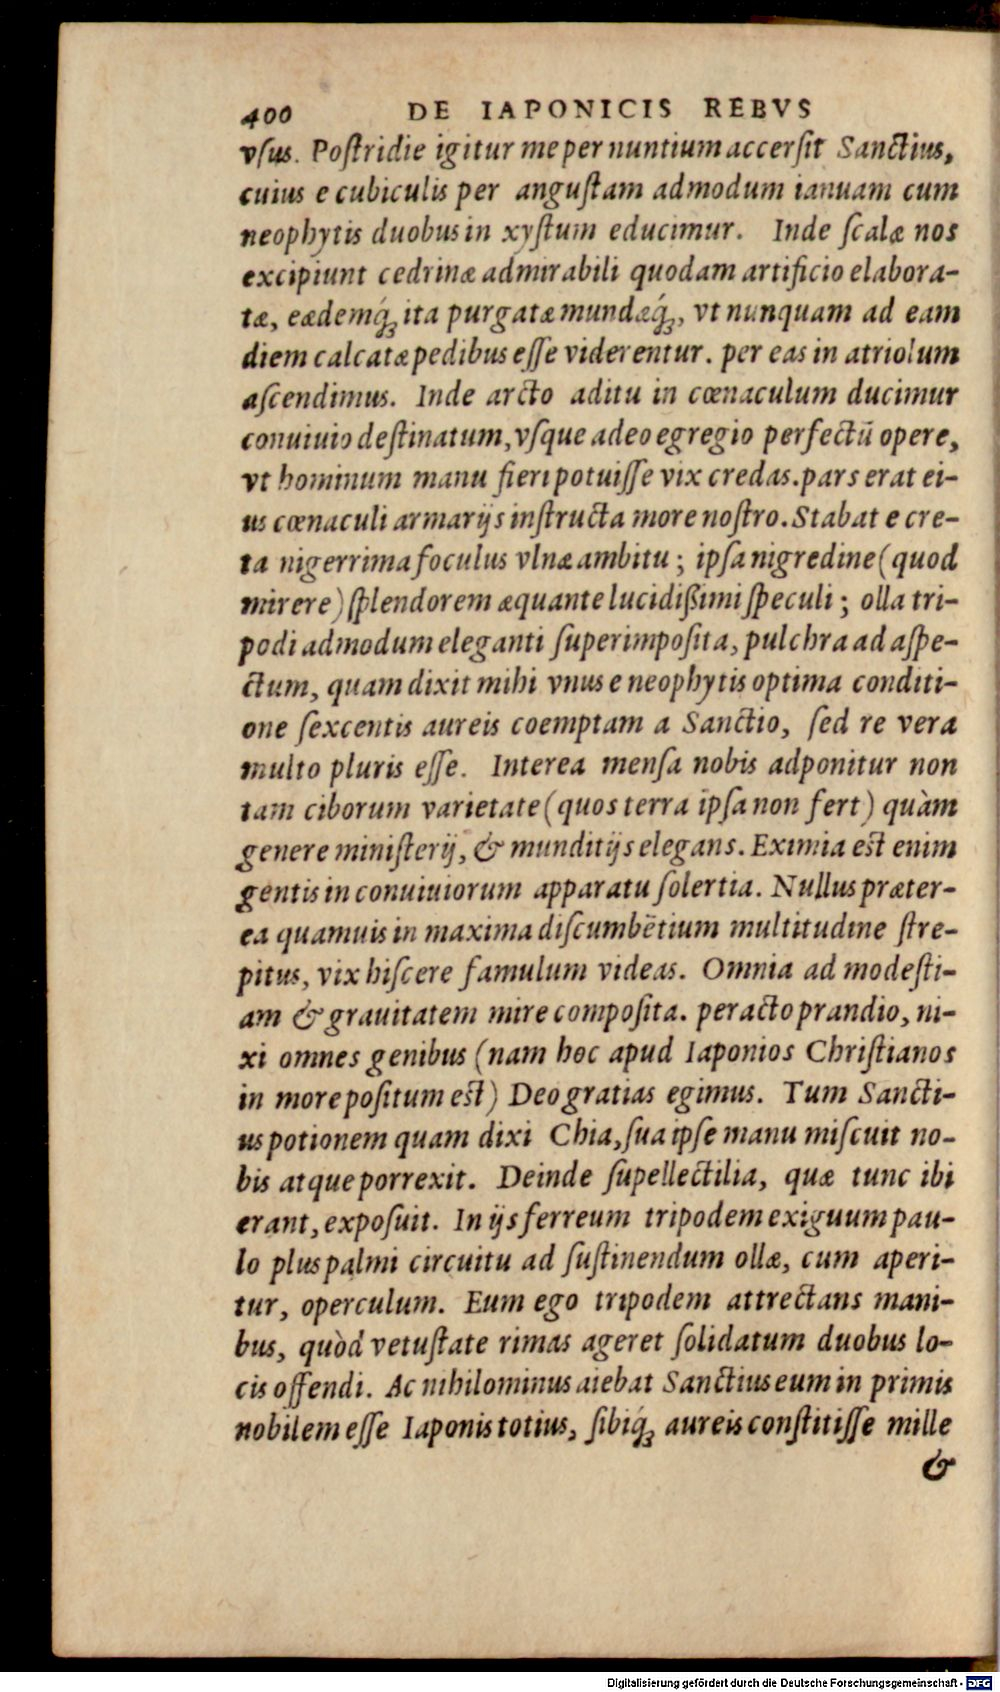 400 DE IAPONICIS REBVS
vſus. Poſtridie igitur me per nuntium accerſit Sanctius,
cuius e cubiculis per anguſtam admodum ianuam cum
neophytis duobus in xyſtum educimur. Inde ſcalæ nos
excipiunt cedrinæ admirabili quodam artificio elabora-
tæ, eædemq́ꝫ ita purgatæ mundæq́ꝫ, vt nunquam ad eam
diem calcatæ pedibus eſſe viderentur. per eas in atriolum
aſcendimus. Inde arcto aditu in cœnaculum ducimur
conuiuio deſtinatum, vſque adeo egregio perfectū opere,
vt hominum manu fieri potuiſſe vix credas. pars erat ei-
us cœnaculi armarijs inſtructa more noſtro. Stabat e cre-
ta nigerrima foculus vlnæ ambitu; ipſa nigredine (quod
mirere) ſplendorem æquante lucidiſsimi ſpeculi; olla tri-
podi admodum eleganti ſuperimpoſita, pulchra ad aſpe-
ctum, quam dixit mihi vnus e neophytis optima conditi-
one ſexcentis aureis coemptam a Sanctio, ſed re vera
multo pluris eſſe. Interea menſa nobis adponitur non
tam ciborum varietate (quos terra ipſa non fert) quàm
genere miniſterij, & munditijs elegans. Eximia est enim
gentis in conuiuiorum apparatu ſolertia. Nullus præter-
ea quamuis in maxima diſcumbētium multitudine ſtre-
pitus, vix hiſcere famulum videas. Omnia ad modeſti-
am & grauitatem mire compoſita. peracto prandio, ni-
xi omnes genibus (nam hoc apud Iaponios Chriſtianos
in more poſitum est) Deo gratias egimus. Tum Sancti-
us potionem quam dixi Chia, ſua ipſe manu miſcuit no-
bis atque porrexit. Deinde ſupellectilia, quæ tunc ibi
erant, expoſuit. In ijs ferreum tripodem exiguum pau-
lo plus palmi circuitu ad ſuſtinendum ollæ, cum aperi-
tur, operculum. Eum ego tripodem attrectans mani-
bus, quòd vetuſtate rimas ageret ſolidatum duobus lo-
cis offendi. Ac nihilominus aiebat Sanctius eum in primis
nobilem eſſe Iaponis totius, ſibiq́ꝫ aureis conſtitiſſe mille
&
Digitalisierung gefördert durch die Deutsche Forschungsgemeinschaft - DFG